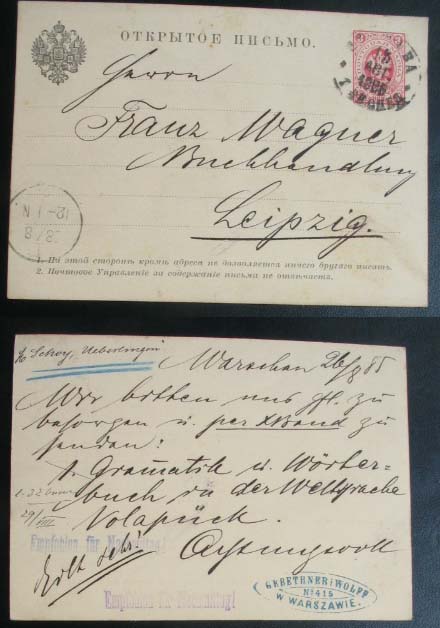 ОТКРЫТОЕ ПИСЬМО.
Herrn
Franz Wagner
Buchhandlung
Leipzig.
12-1 N.
28/8
1. На этой сторонѣ кромѣ адреса не дозволяется ничего другаго писать.
2. Почтовое Управленіе за содержаніе письма не отвѣчаетъ.
Schoy, Ueberlingen
Warschau 26/8 85
Wir bitten uns gfl. zu
besorgen u. per XBand zu
senden:
1. Gramatik u. Wörter-
buch zu der Weltsprache
Volapück.
29/VIII
Empfohlen für
Achtungsvoll
Eilt sehr!
Empfohlen für
GEBETHNER i WOLFF
No 415
W WARSZAWIE.